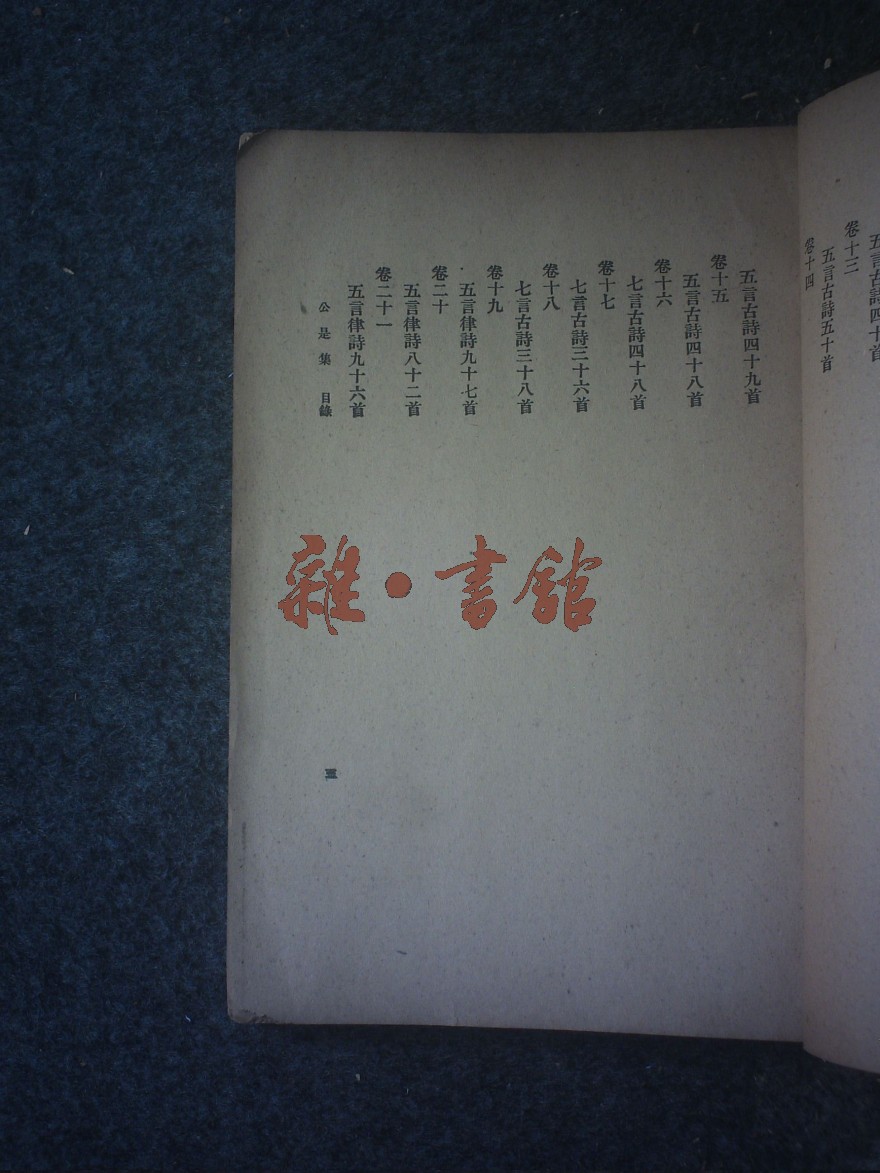 五言古詩四十首
卷十三
五言古詩五十首
卷十四
五言古詩四十九首
卷十五
五言古詩四十八首
卷十六
七言古詩四十八首
卷十七
七言古詩三十六首
卷十八
七言古詩三十八首
卷十九
五言律詩九十七首
卷二十
五言律詩八十二首
卷二十一
五言律詩九十六首
公是集 目錄
三
雜·書館